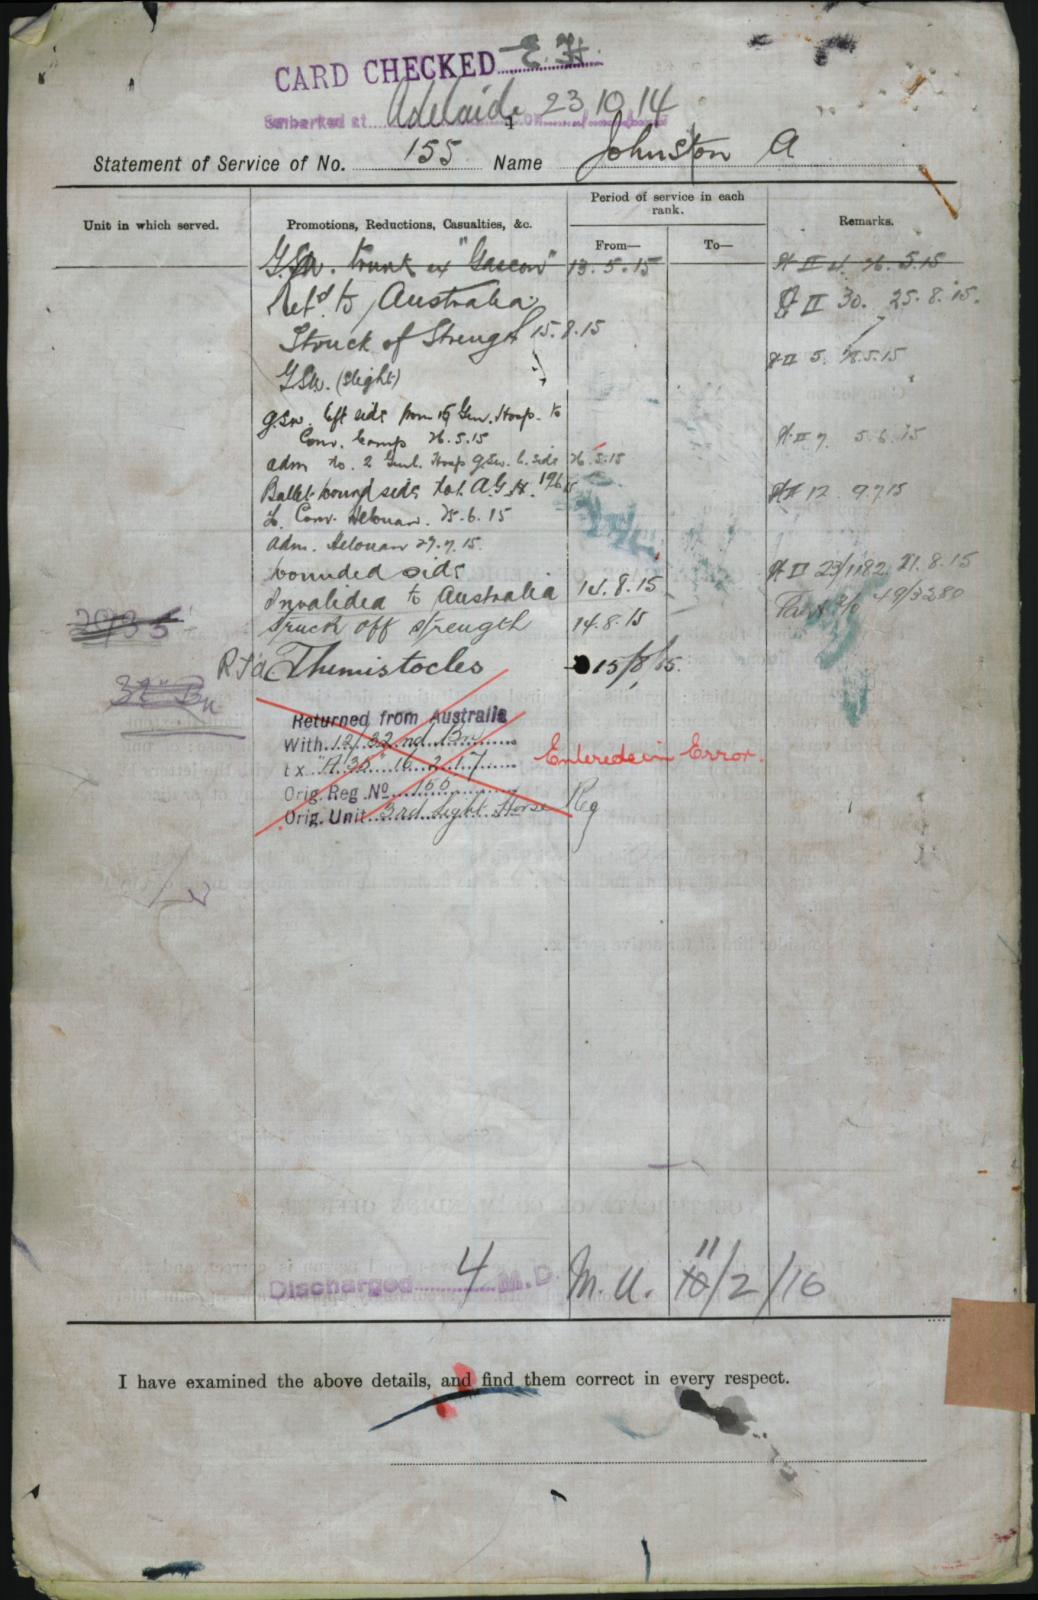 CARD CHECKED E.H.
Embarked at Adelaide on 23 10 14
Statement of Service of No. 155 Name Johnston A
Unit in which served.
Promotions, Reductions, Casualties, &c.
Period of service in each rank.
From—
To—
Remarks.
G.S.W. trunk ex "Gascon" 13.5.15 II 4. 26.5.15
Ret'd to Australia II 30. 25.8.15.
Struck of Strength 15.8.15
G.S.W. (slight) II 5. 28.5.15
G.S.W. left side from 15 Gen. Hosp. to
Conv. Camp 26.5.15 II 7 5.6.15
adm to. 2 Genl. Hosp G.S.W. L. side 26.5.15
Bullet wound side to 1. A.G.H. II 12 9.7.15
to Conv. Helouan. 25.6.15
adm. Helouan 29.7.15.
wounded side II 23/1182 21.8.15
Invalided to Australia 14.8.15 49/3280
struck off strength 14.8.15
2935
RTA Themistocles 15/8/15.
32nd Bn
Returned from Australia
With 12/32nd Bn
Ex "A 35" 16 2 17
Entered in Error.
Orig. Reg No 155
Orig. Unit 3rd Light Horse Reg
Discharged 4 M.D. M.U. 11/2/16
I have examined the above details, and find them correct in every respect.